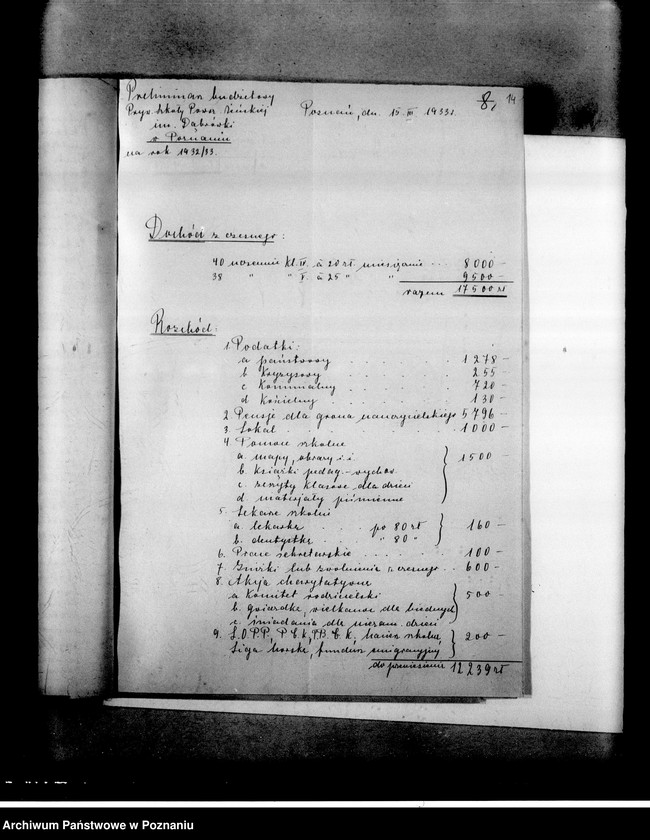 Preliminarz budżetowy
Pryw. Szkoły Powsz. Żeńskiej
im. Dąbrówki
w Poznaniu
na rok 1932/33.
Poznań, dn. 15. III 1933 r.
8, 14
Dochód z czesnego:
40 uczennic kl. IV à 20 zł miesięcznie .. 8 000 —
38 " " V à 25 " " 9 500 —
razem 17 500 zł
Rozchód:
1. Podatki:
a państwowy . . . . . . 1 278 —
b kryzysowy . . . . . . 255 —
c komunalny . . . . . . 720 —
d kościelny . . . . . . 130 —
2. Pensje dla grona nauczycielskiego 5 796 —
3. Lokal . . . . . . . . 1 000 —
4. Pomoce szkolne
a. mapy, obrazy i. i. 1 500 —
b. książki pedag.-wychow.
c. zeszyty klasowe dla dzieci
d. materjały piśmienne
5. Lekarze szkolni
a. lekarka . . . . po 80 zł 160 —
b. dentystka . . . " 80 "
6. Prace sekretarskie . . . . . 100 —
7. Zniżki lub zwolnienia z czesnego .. 600 —
8. Akcja charytatywna
a Komitet rodzicielski 500 —
b. gwiazdka, wielkanoc dla biednych
c. śniadania dla niezam. dzieci
9. L.O.P.P., P.C.K., harcer. szkolne, 200 —
Liga morska, fundusz emigracyjny
do przeniesienia 12 239 zł
Archiwum Państwowe w Poznaniu